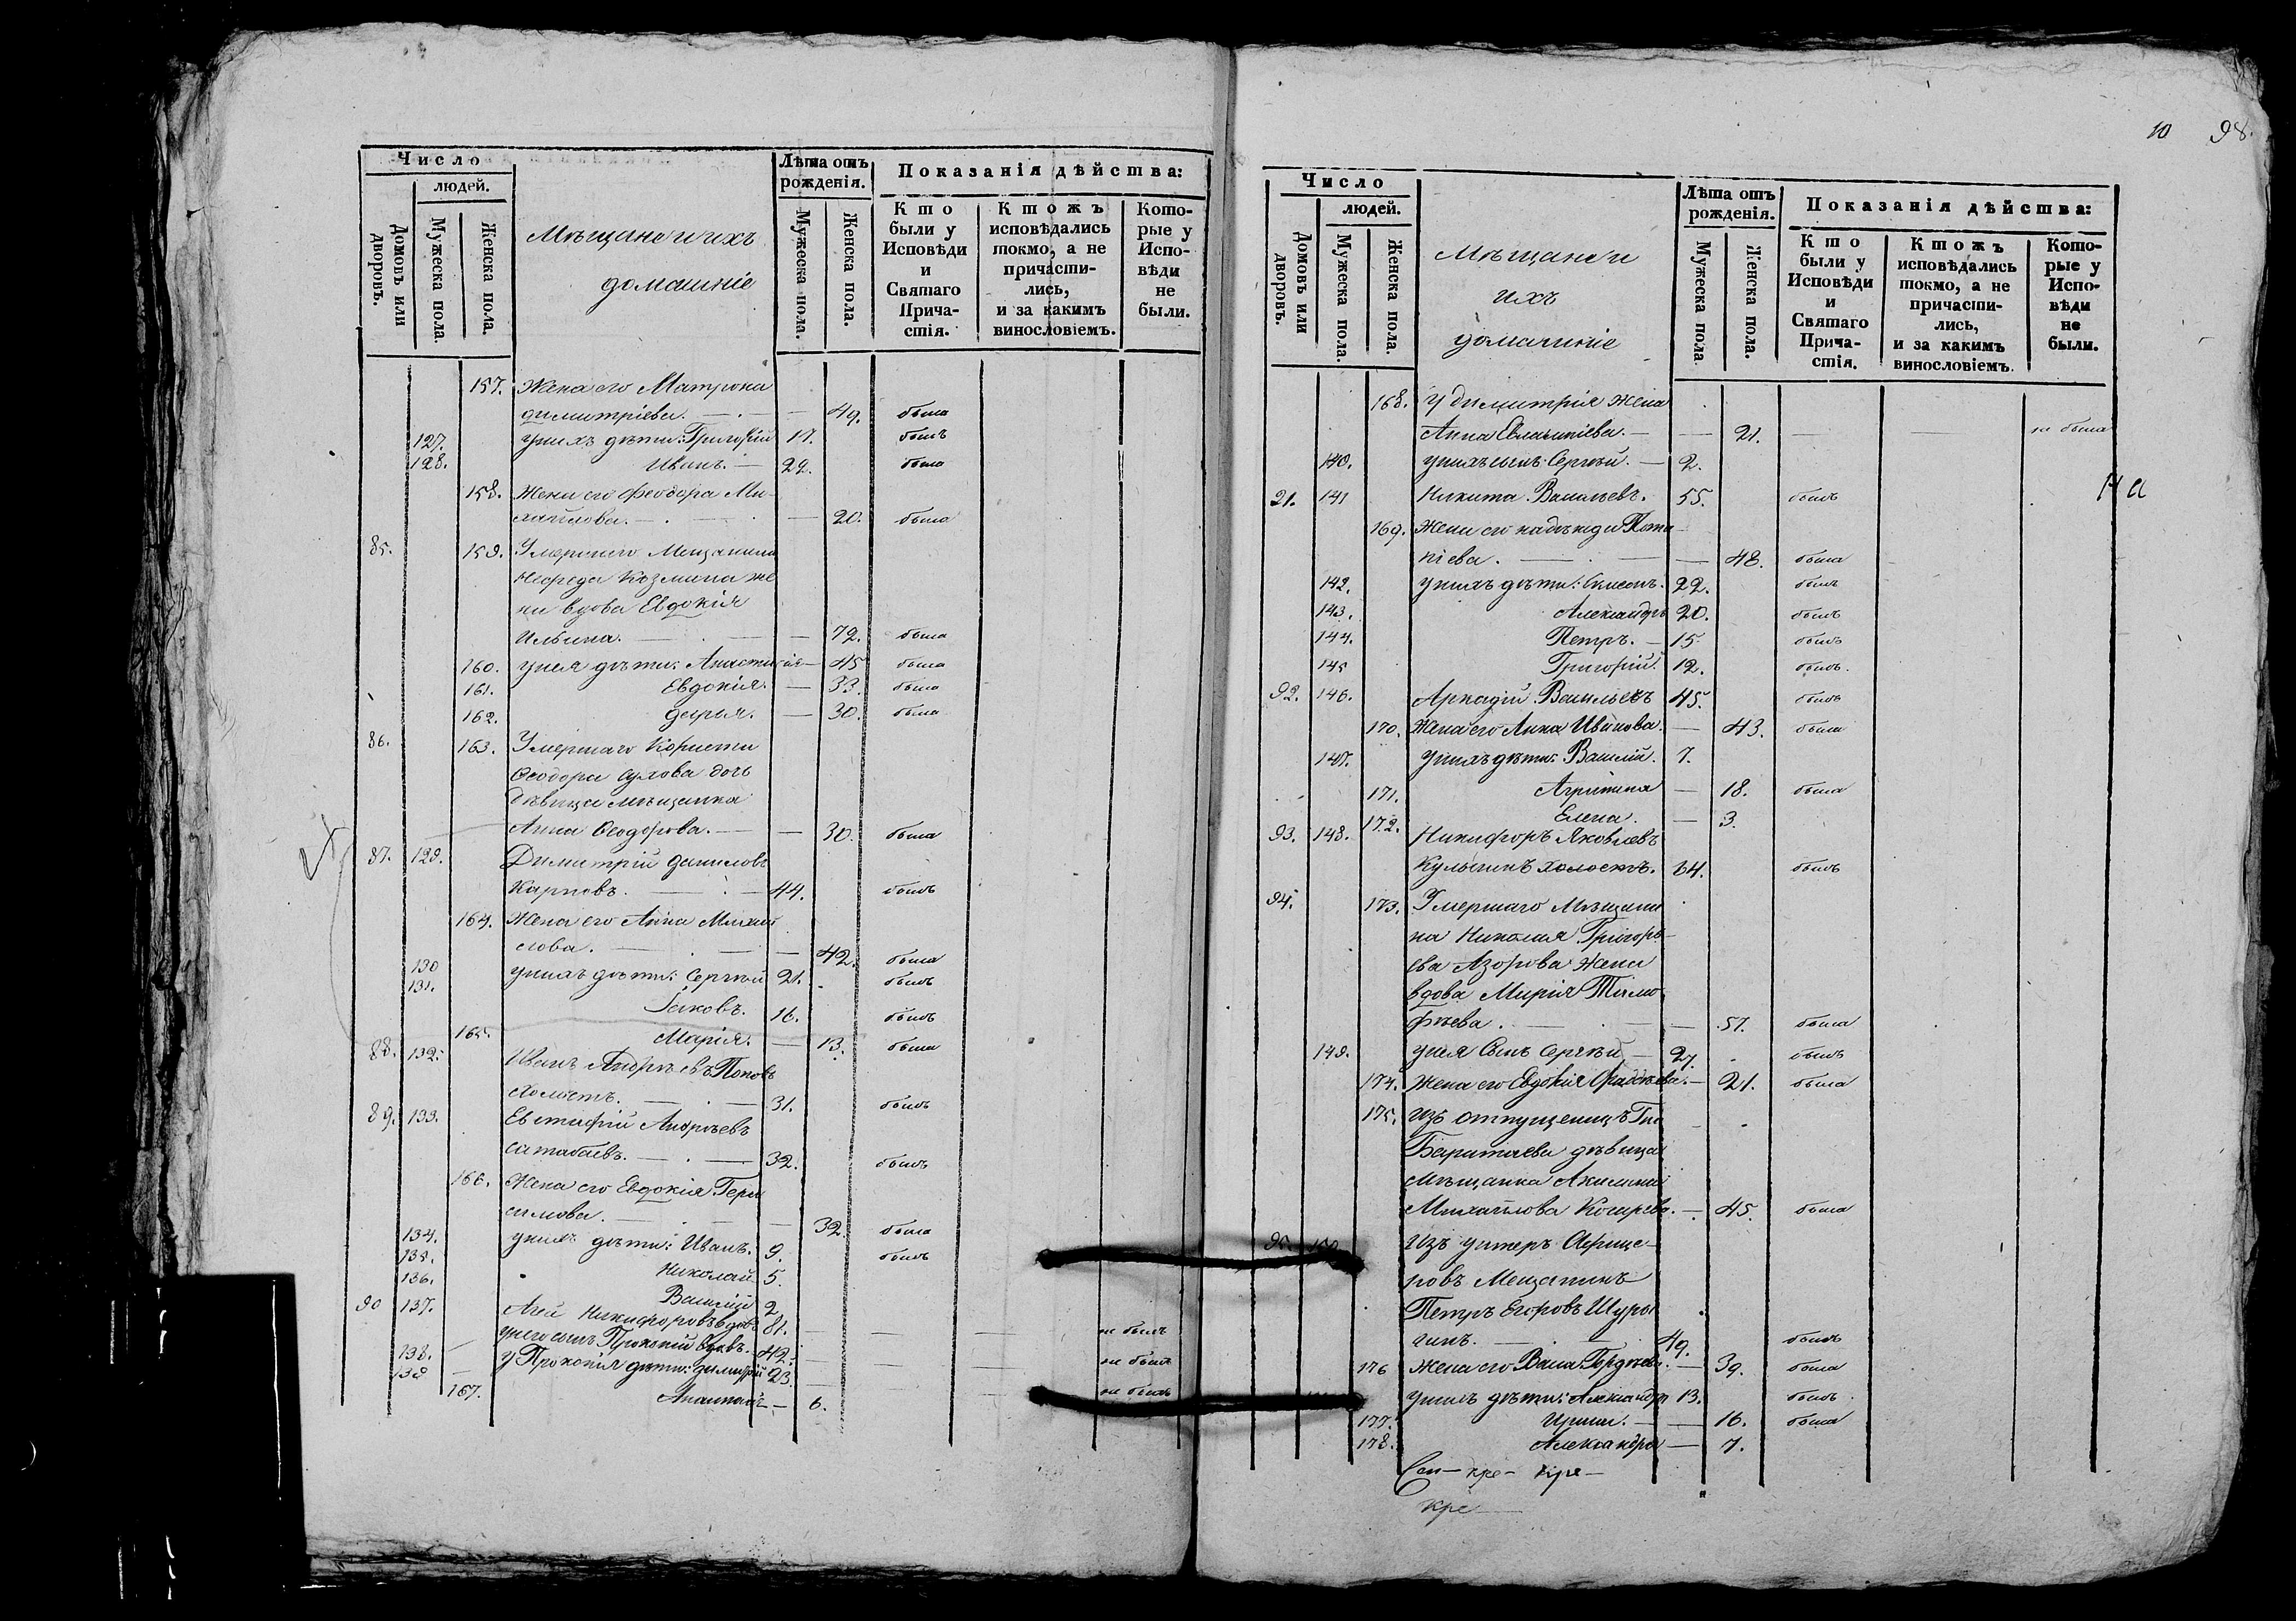 Число
людей.
Домовъ или дворовъ.
Мужеска пола.
Женска пола.
Мѣщане и ихъ
домашніе
Лѣта отъ
рожденія.
Мужеска пола.
Женска пола.
Показанія дѣйства:
Кто
были у
Исповѣди
и
Святаго
Прича-
стія.
Ктожъ
исповѣдались
токмо, а не
причасти-
лись,
и за какимъ
винословіемъ.
Кото-
рые у
Испо-
вѣди
не
были.
157. Жена его Матрона
Димитріева. — 49. была
127. у нихъ дѣти: Григорій 17. былъ
128. Иванъ. — 22. была
158. Жена его Феодора Ми-
хайлова. — 20. была
85. 159. Умершаго Мещанина
Козмина же
на вдова Евдокія
Ильина. — 72. была
160. у нея дѣти: Анастасія — 45 была
161. Евдокія. — 33. была
162. Дарья. — 30. была
86. 163. Умершаго
Феодора дочь
дѣвица мѣщанка
Анна Феодорова. — 30. была
87. 129. Димитрій Даниловъ
Карповъ. — 44. былъ
164. Жена его Анна Михай
лова. — 42. была
130 у нихъ дѣти: Сергѣй 21. былъ
131. Іаковъ. 16. былъ
165. Марія. — 13. была
88. 132. Иванъ Андрѣевъ Поповъ
холостъ. — 31. былъ
89. 133. Евстафій Андрѣевъ
— 32. былъ
166. Жена его Евдокія Гера
симова. — 32. была
134. у нихъ дѣти: Иванъ. 9. былъ
135. Николай 5.
136. Василій 2.
90 137. Никифоровъ вдовъ 81. — — не былъ
138. у него сынъ Прокопій вдовъ. 42. — — не былъ
139 у Прокопія дѣти: Димитрій 23. — — не былъ
167. — 6.
10 98.
Число
людей.
Домовъ или дворовъ.
Мужеска пола.
Женска пола.
Мѣщане и
ихъ
домашніе
Лѣта отъ
рожденія.
Мужеска пола
Женска пола.
Показанія дѣйства:
Кто
были у
Исповѣди
и
Святаго
Прича-
стія.
Ктожъ
исповѣдались
токмо, а не
причасти-
лись,
и за какимъ
винословіемъ.
Кото-
рые у
Испо-
вѣди
не
были.
168. у Димитрія жена
Анна Евлампіева. — — 21. — — не была
140. у нихъ сынъ Сергѣй. — 2.
91. 141 Никита Васильевъ. 55. былъ
169. Жена его Надѣжда Пота
піева. — 48. была
142. у нихъ дѣти: 22. былъ
143. Александръ 20. былъ
144. Петръ. — 15. былъ
145 Григорій. 12. былъ.
92. 146. Аркадій Васильевъ 45. былъ
170. Жена его Анна Иванова. — 43. была
147. у нихъ дѣти: Василій. 7.
171. Агрипина — 18. была
172. Елена. — 3.
93. 148. Никифоръ Яковлевъ
холостъ. 64. былъ
94. 173. Умершаго Мѣщани
на Николая Григорь-
ева Азорова жена
вдова Марія Тимо
фѣева. — 57. была
149. у нея сынъ Сергѣй — 27. былъ
174. Жена его Евдокія Фаддѣева. — 21. была
175. Изъ отпущенницъ
Баратаева дѣвица
мѣщанка Акилина
Михайлова — 45. была
95. 150 Изъ унтеръ Офице-
ровъ Мещанинъ
Петръ Егоровъ Шуры
гинъ. — 49. былъ
176 Жена его — 39. была
у нихъ дѣти: Александръ 13. былъ
177. Ирина. — 16. была
178. Александра — 7.